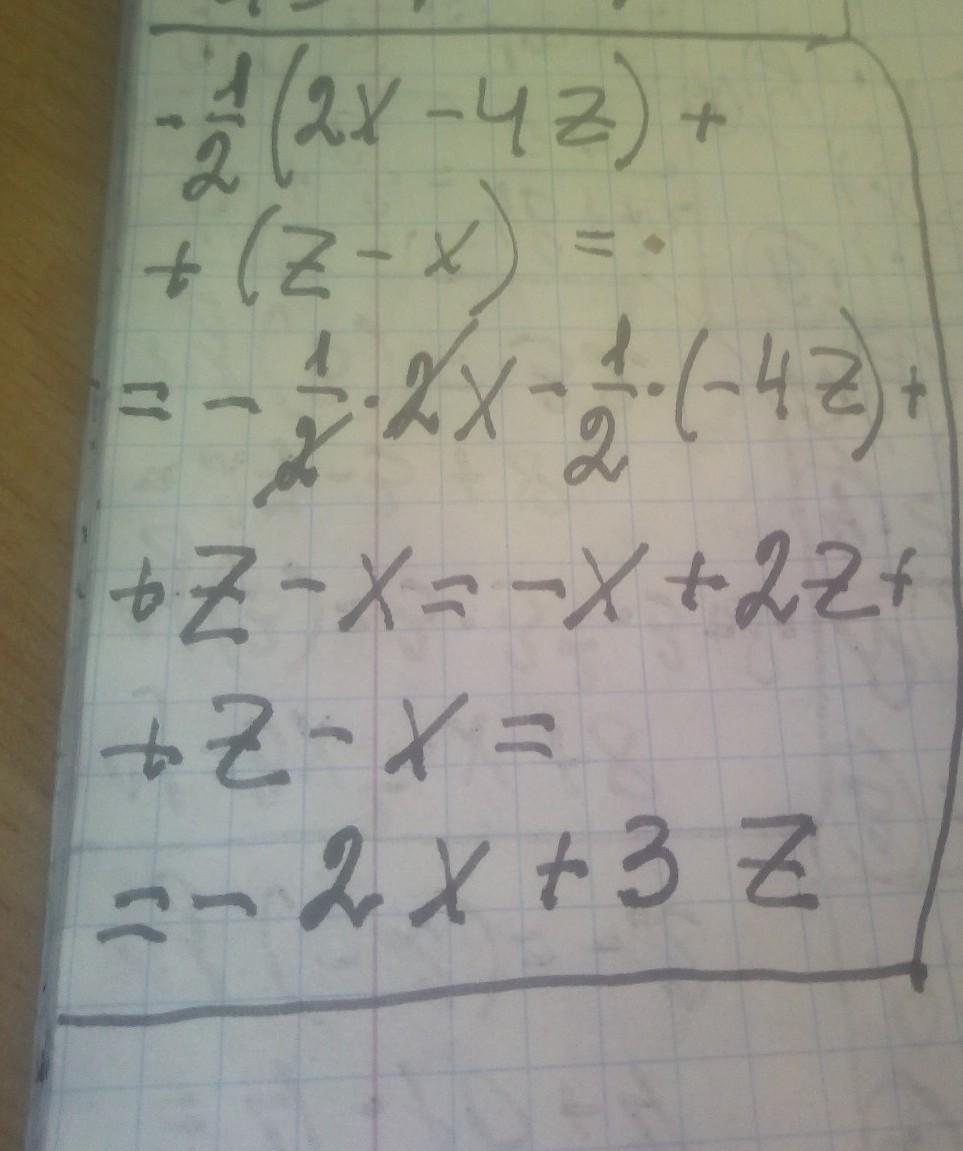 -1/2(2x-4z)+
+(z-x)=
=-1/2·2x-1/2·(-4z)+
+z-x=-x+2z+
+z-x=
=-2x+3z